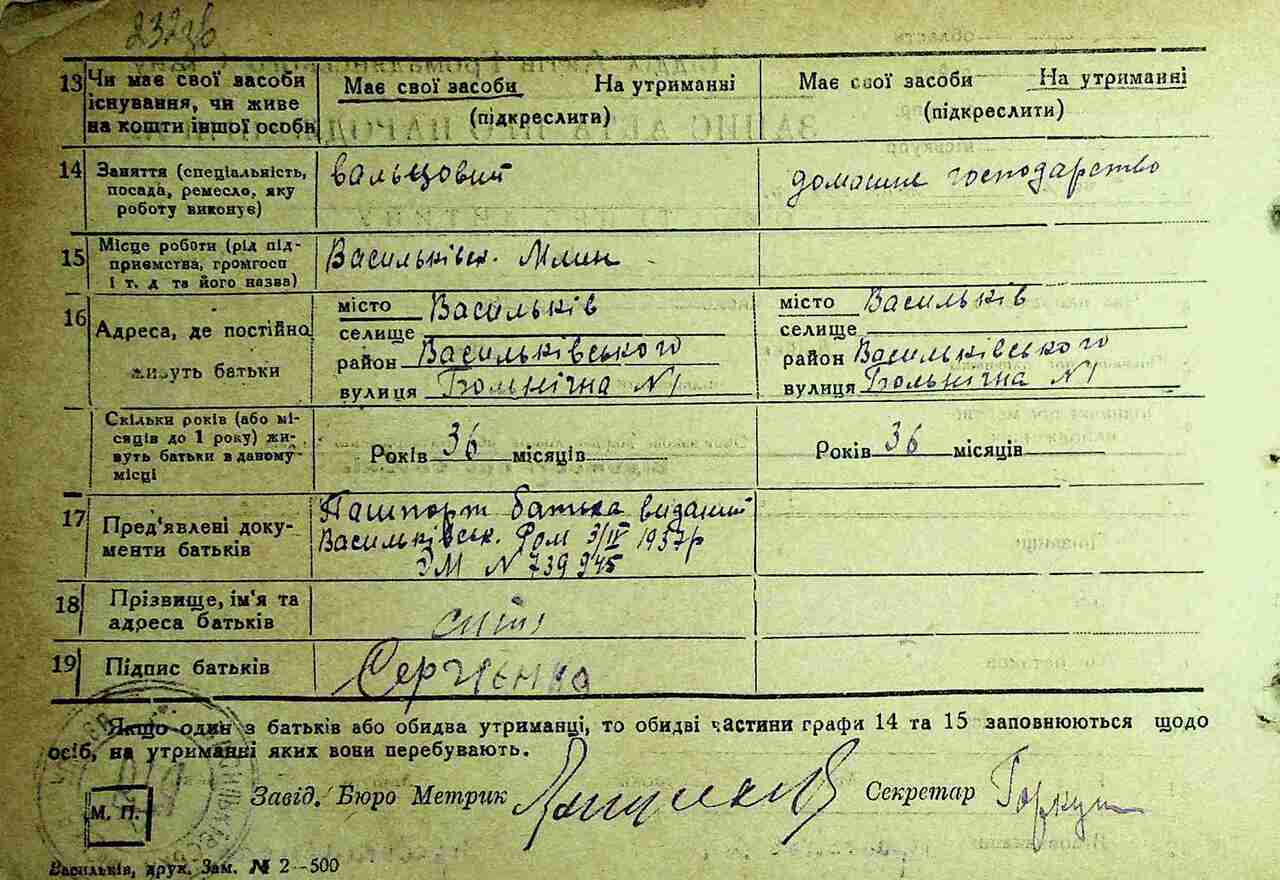 232зв
13 Чи має свої засоби існування, чи живе на кошти іншої особи
Має свої засоби На утриманні
(підкреслити)
Має свої засоби На утриманні
(підкреслити)
14 Заняття (спеціальність, посада, ремесло, яку роботу виконує)
вальцовий
домашнє господарство
15 Місце роботи (рід підприємства, громгосп і т. д та його назва)
Васильківск. Млин
16 Адреса, де постійно живуть батьки
місто Васильків
селище
район Васильківського
вулиця Больнічна N 1
місто Васильків
селище
район Васильківського
вулиця Больнічна N 1
Скільки років (або місяців до 1 року) живуть батьки в даному місці
Років 36 місяців
Років 36 місяців
17 Пред'явлені документи батьків
Пашпорт батька виданий
Васильківськ. Ром 3/ІІ 1937р
ЭМ N 739945
18 Прізвище, ім'я та адреса батьків
19 Підпис батьків
Сергиєнко
Якщо один з батьків або обидва утриманці, то обидві частини графи 14 та 15 заповнюються щодо
осіб, на утриманні яких вони перебувають.
Завід. Бюро Метрик Секретар Горкуш
М. П.
Васильків, друк. Зам. № 2—500